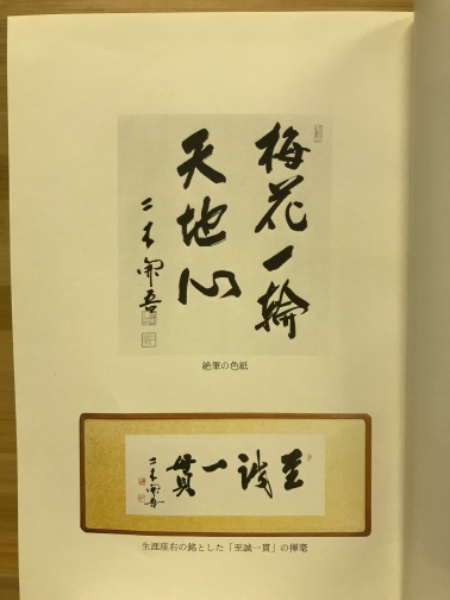 梅花一輪
天地心
二木謙吾
絶筆の色紙
至誠一貫
二木謙吾
生涯座右の銘とした「至誠一貫」の揮毫